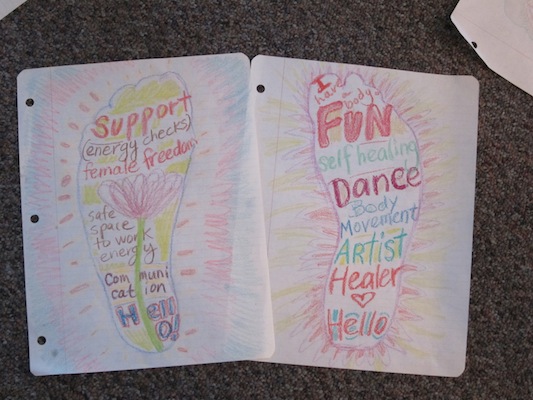 Support
(energy checks)
female freedom
safe
space
to work
energy
Communi
cation
Hell
O!
I
have
a body
FUN
self healing
Dance
Body
Movement
ARTIST
Healer
Hello